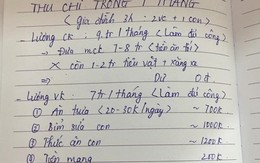 THU CHI TRONG 1 THÁNG
(gia đình 3N : 2vc + 1 con)
- Lương ck : 9.tr / 1 tháng (Làm đủ công)
→ Đưa mck 7-8 tr (tiền ăn ở)
× còn 1-2 tr tiêu vặt + xăng xe
⇒ Dư 0 đ.
- Lương vk : 7tr / 1 tháng (làm đủ công)
① Ăn trưa (20-30k/ngày) ~ 700k
② Bỉm sữa con ~ 1000k
③ Thức ăn con ~ 1200k
④ Tiền mạng 210k